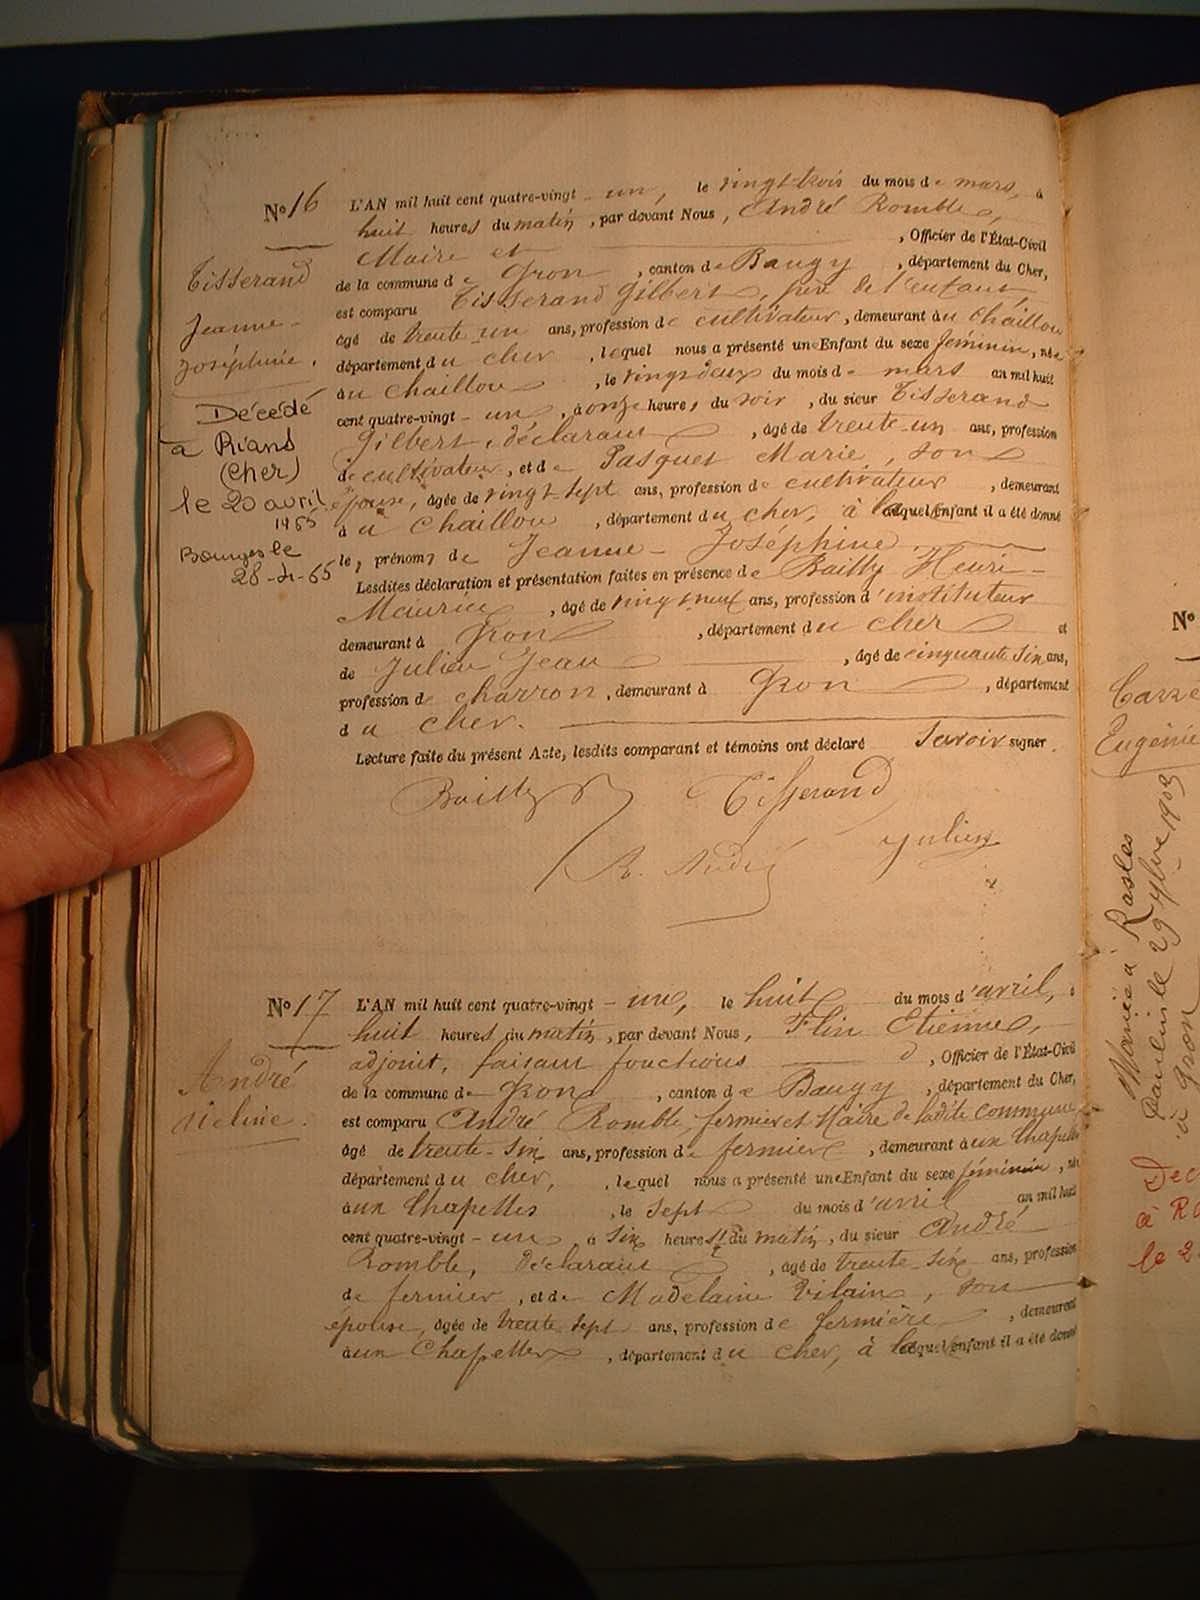 No 16
Tisserand
Jeanne-
Joséphine.
Décédé
a Rians
(Cher)
le 20 avril
1965
Bourges le
28-4-65
L'AN mil huit cent quatre-vingt - un, le vingt-trois du mois de mars, à
huit heures du matin, par devant Nous, André Romble,
Maire et , Officier de l'État-Civil
de la commune de Gron , canton de Baugy , département du Cher,
est comparu Tisserand Gilbert, père de l'enfant,
âgé de trente un ans, profession de cultivateur, demeurant au Chaillou
département du cher , lequel nous a présenté une Enfant du sexe féminin, née
au Chaillou , le vingt deux du mois de mars an mil huit
cent quatre-vingt - un , à onze heures du soir , du sieur Tisserand
Gilbert, déclarant , âgé de trente-un ans, profession
de cultivateur, et de Pasquet Marie, son
épouse, âgée de vingt-sept ans, profession de cultivateur , demeurant
au Chaillou , département du cher, à laquel enfant il a été donné
les prénoms de Jeanne - Joséphine
Lesdites déclaration et présentation faites en présence de Bailly Henri-
Maurice , âgé de vingt neuf ans, profession d'instituteur
demeurant à Gron , département du cher et
de Julien Jean , âgé de cinquante six ans,
profession de charron, demeurant à Gron , département
du cher.
Lecture faite du présent Acte, lesdits comparant et témoins ont déclaré savoir signer.
Bailly Tisserand
Julien
R. André
No 17
André
L'AN mil huit cent quatre-vingt - un, le huit du mois d'avril, à
huit heures du matin, par devant Nous, Flin Etienne,
adjoint, faisant fonctions d , Officier de l'État-Civil
de la commune de Gron , canton de Baugy , département du Cher,
est comparu André Romble, fermier et Maire de ladite commune
âgé de trente-six ans, profession de fermier , demeurant aux Chapelles
département du cher, , lequel nous a présenté une Enfant du sexe féminin, née
aux Chapelles , le sept du mois d'avril an mil huit
cent quatre-vingt - un à six heures du matin, du sieur André
Romble, déclarant , âgé de trente six ans, profession
de fermier, et de Madelaine Vilain, son
épouse, âgée de trente sept ans, profession de fermière , demeurant
aux Chapelles , département du cher, à laquel enfant il a été donné
No
Carré
Eugénie
Mariée à Rasles
le 29 9bre 1903
à Gron
Dec
à R
le 2